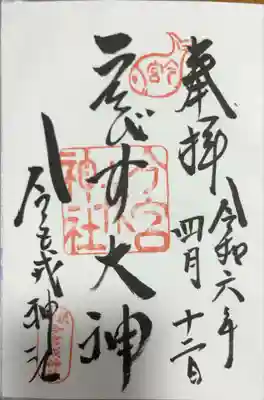 奉拝
令和六年
四月十二日
今宮
ゑびす大神
今宮戎神社